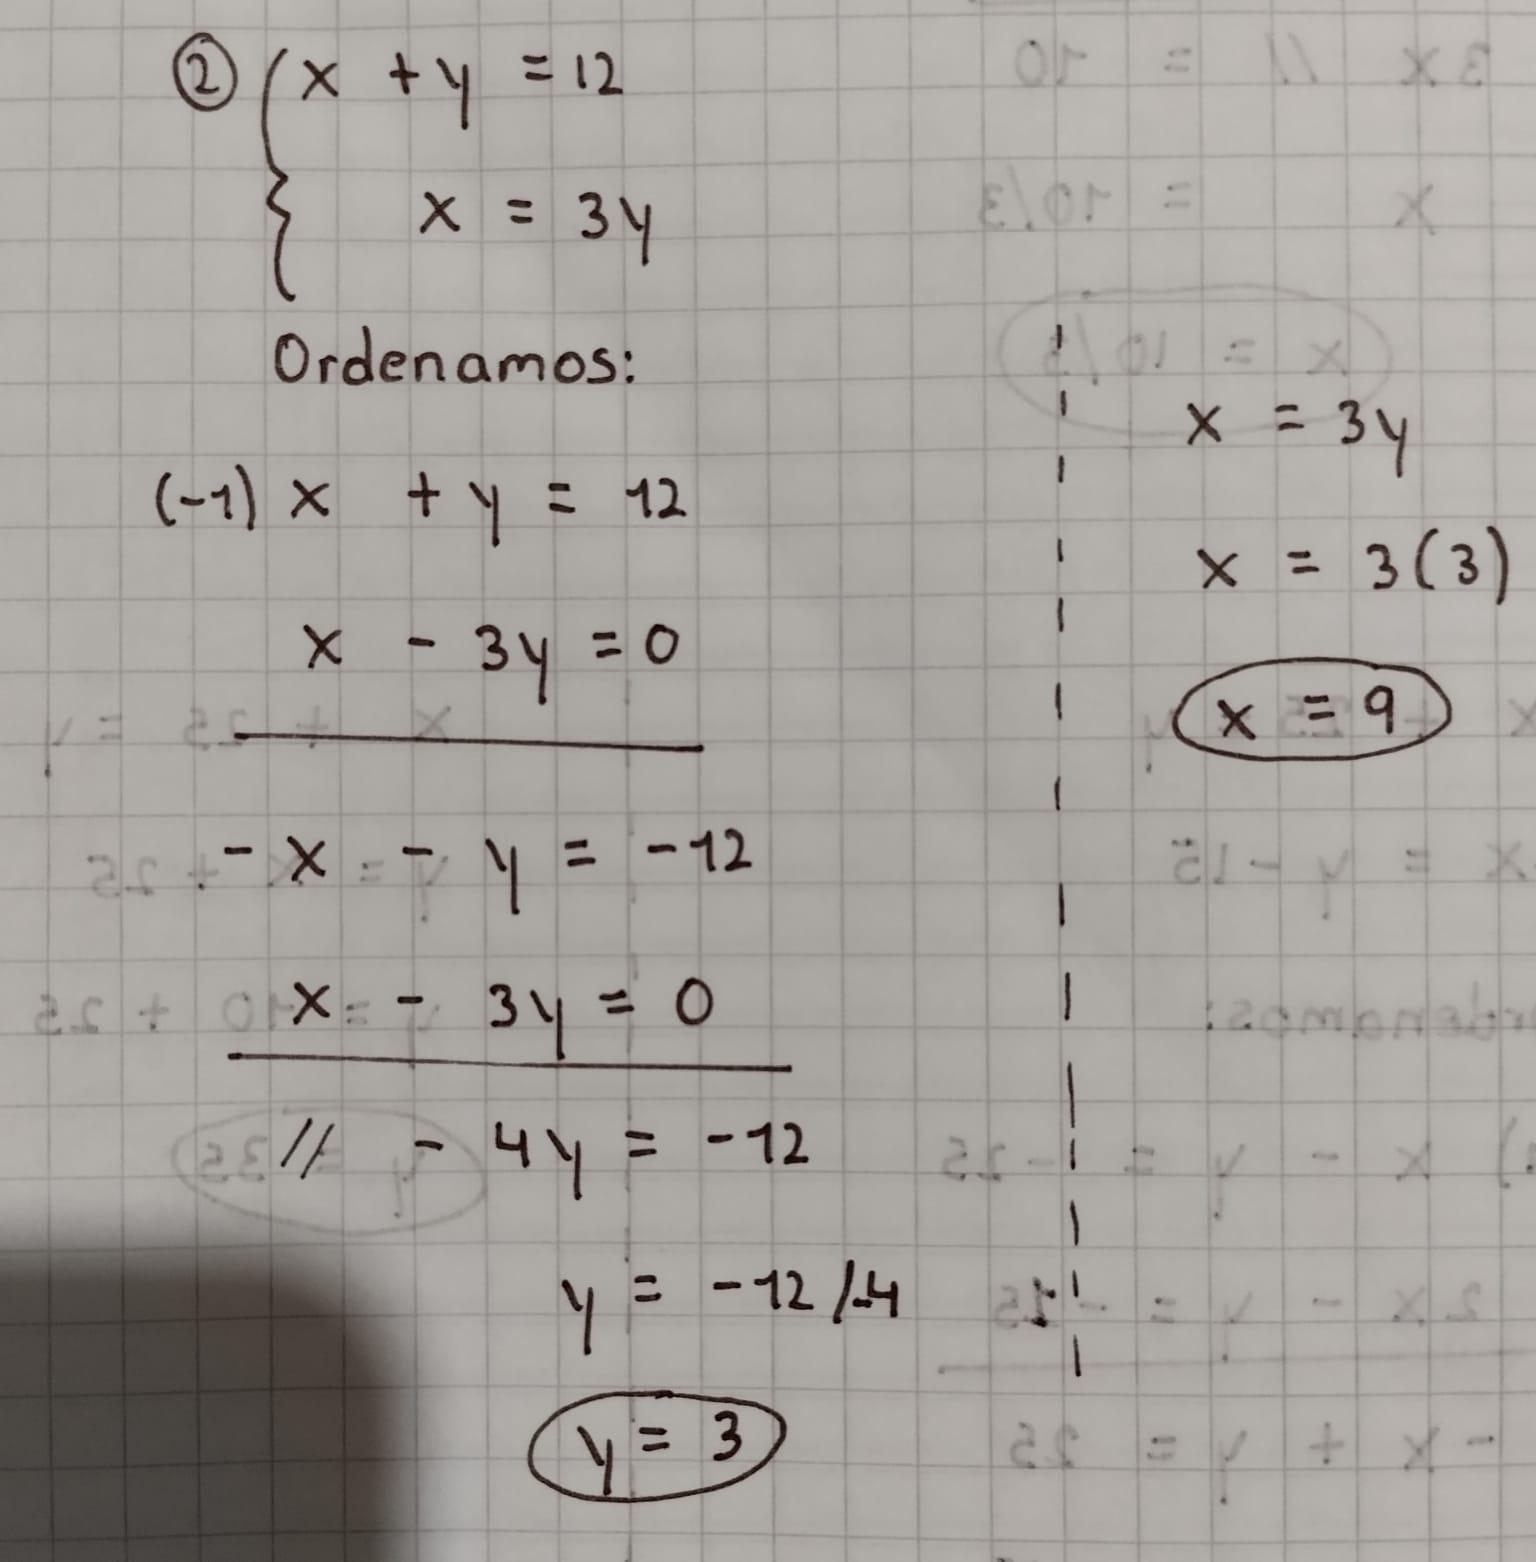 ② x + y = 12
x = 3y
Ordenamos:
(-1) x + y = 12
x - 3y = 0
- x - y = -12
x - 3y = 0
// - 4y = -12
y = -12/-4
y = 3
x = 3y
x = 3(3)
x = 9